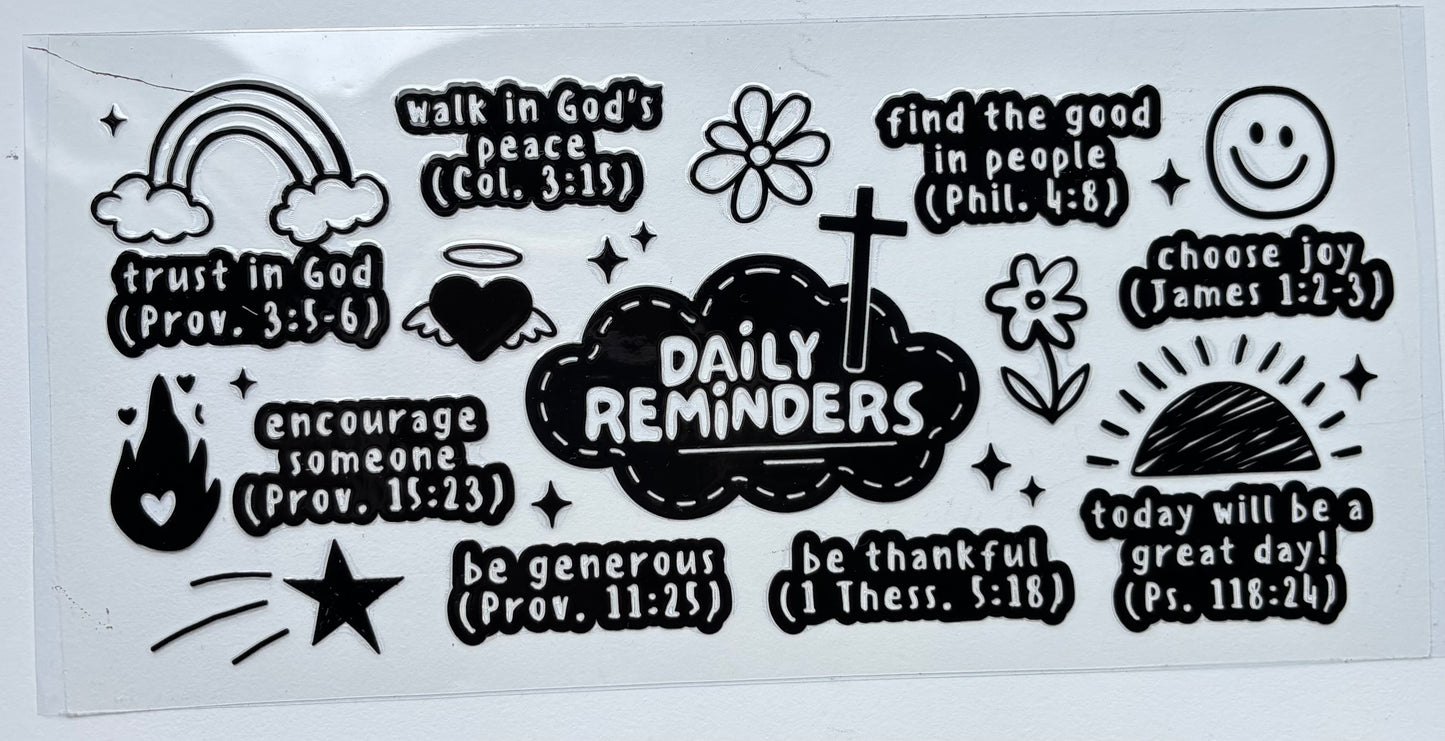 walk in God's
peace
(Col. 3:15)
find the good
in people
(Phil. 4:8)
trust in God
(Prov. 3:5-6)
choose joy
(James 1:2-3)
DAiLY
REMiNDERS
encourage
someone
(Prov. 15:23)
be generous
(Prov. 11:25)
be thankful
(1 Thess. 5:18)
today will be a
great day!
(Ps. 118:24)